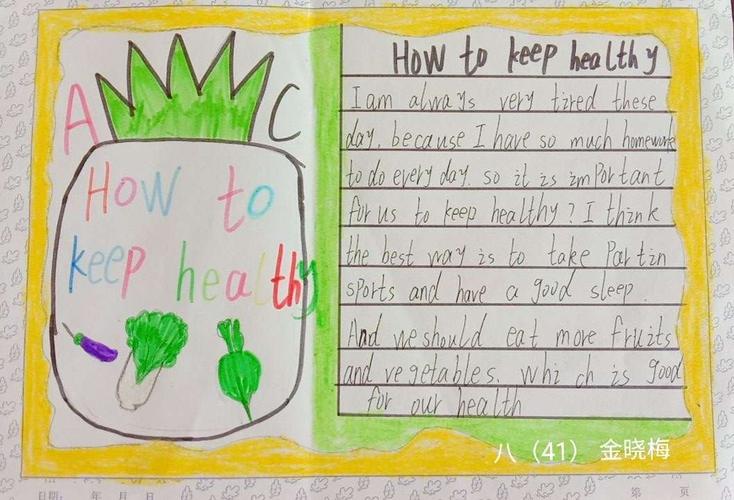 A
C
How to
keep healthy
How to keep healthy
I am always very tired these
day. because I have so much homework
to do every day. so it is important
for us to keep healthy? I think
the best way is to take Part in
sports and have a good sleep.
And we should eat more fruits
and vegetables. whi ch is good
for our health
八（41） 金晓梅
日期: 年 月 日
第 页